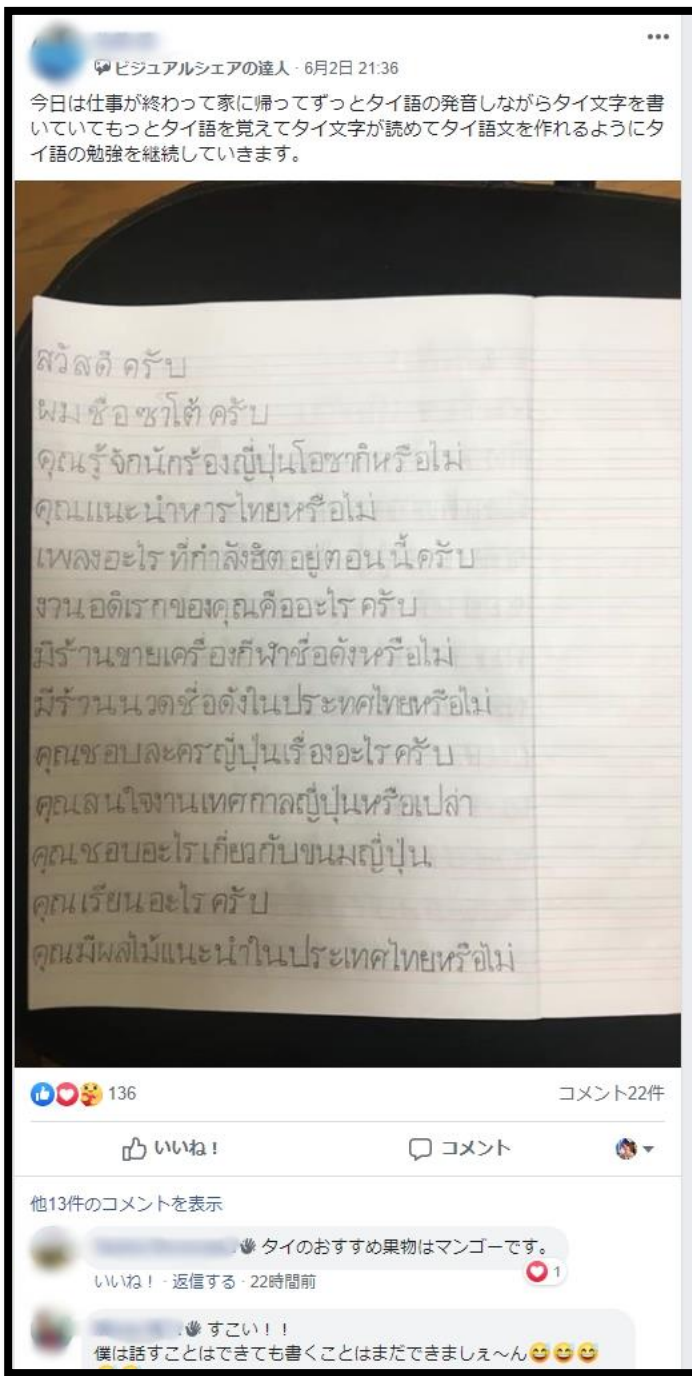 ビジュアルシェアの達人 · 6月2日 21:36
今日は仕事が終わって家に帰ってずっとタイ語の発音しながらタイ文字を書
いていてもっとタイ語を覚えてタイ文字が読めてタイ語文を作れるようにタ
イ語の勉強を継続していきます。
สวัสดี ครับ
ผม ชื่อ ซาโต้ ครับ
คุณรู้จักนักร้องญี่ปุ่นโอซากิหรือไม่
คุณแนะนำหารไทยหรือไม่
เพลงอะไร ที่กำลังฮิตอยู่ตอนนี้ครับ
งานอดิเรกของคุณคืออะไร ครับ
มีร้านขายเครื่องกีฬาชื่อดังหรือไม่
มีร้านนวดชื่อดังในประทศไทยหรือไม่
คุณชอบละครญี่ปุ่นเรื่องอะไร ครับ
คุณสนใจงานเทศกาลญี่ปุ่นหรือเปล่า
คุณชอบอะไรเกี่ยวกับขนมญี่ปุ่น
คุณเรียนอะไร ครับ
คุณมีผลไม้แนะนำในประเทศไทยหรือไม่
136
コメント22件
いいね！
コメント
他13件のコメントを表示
タイのおすすめ果物はマンゴーです。
1
いいね！ · 返信する · 22時間前
すごい！！
僕は話すことはできても書くことはまだできましぇ～ん😅😅😅